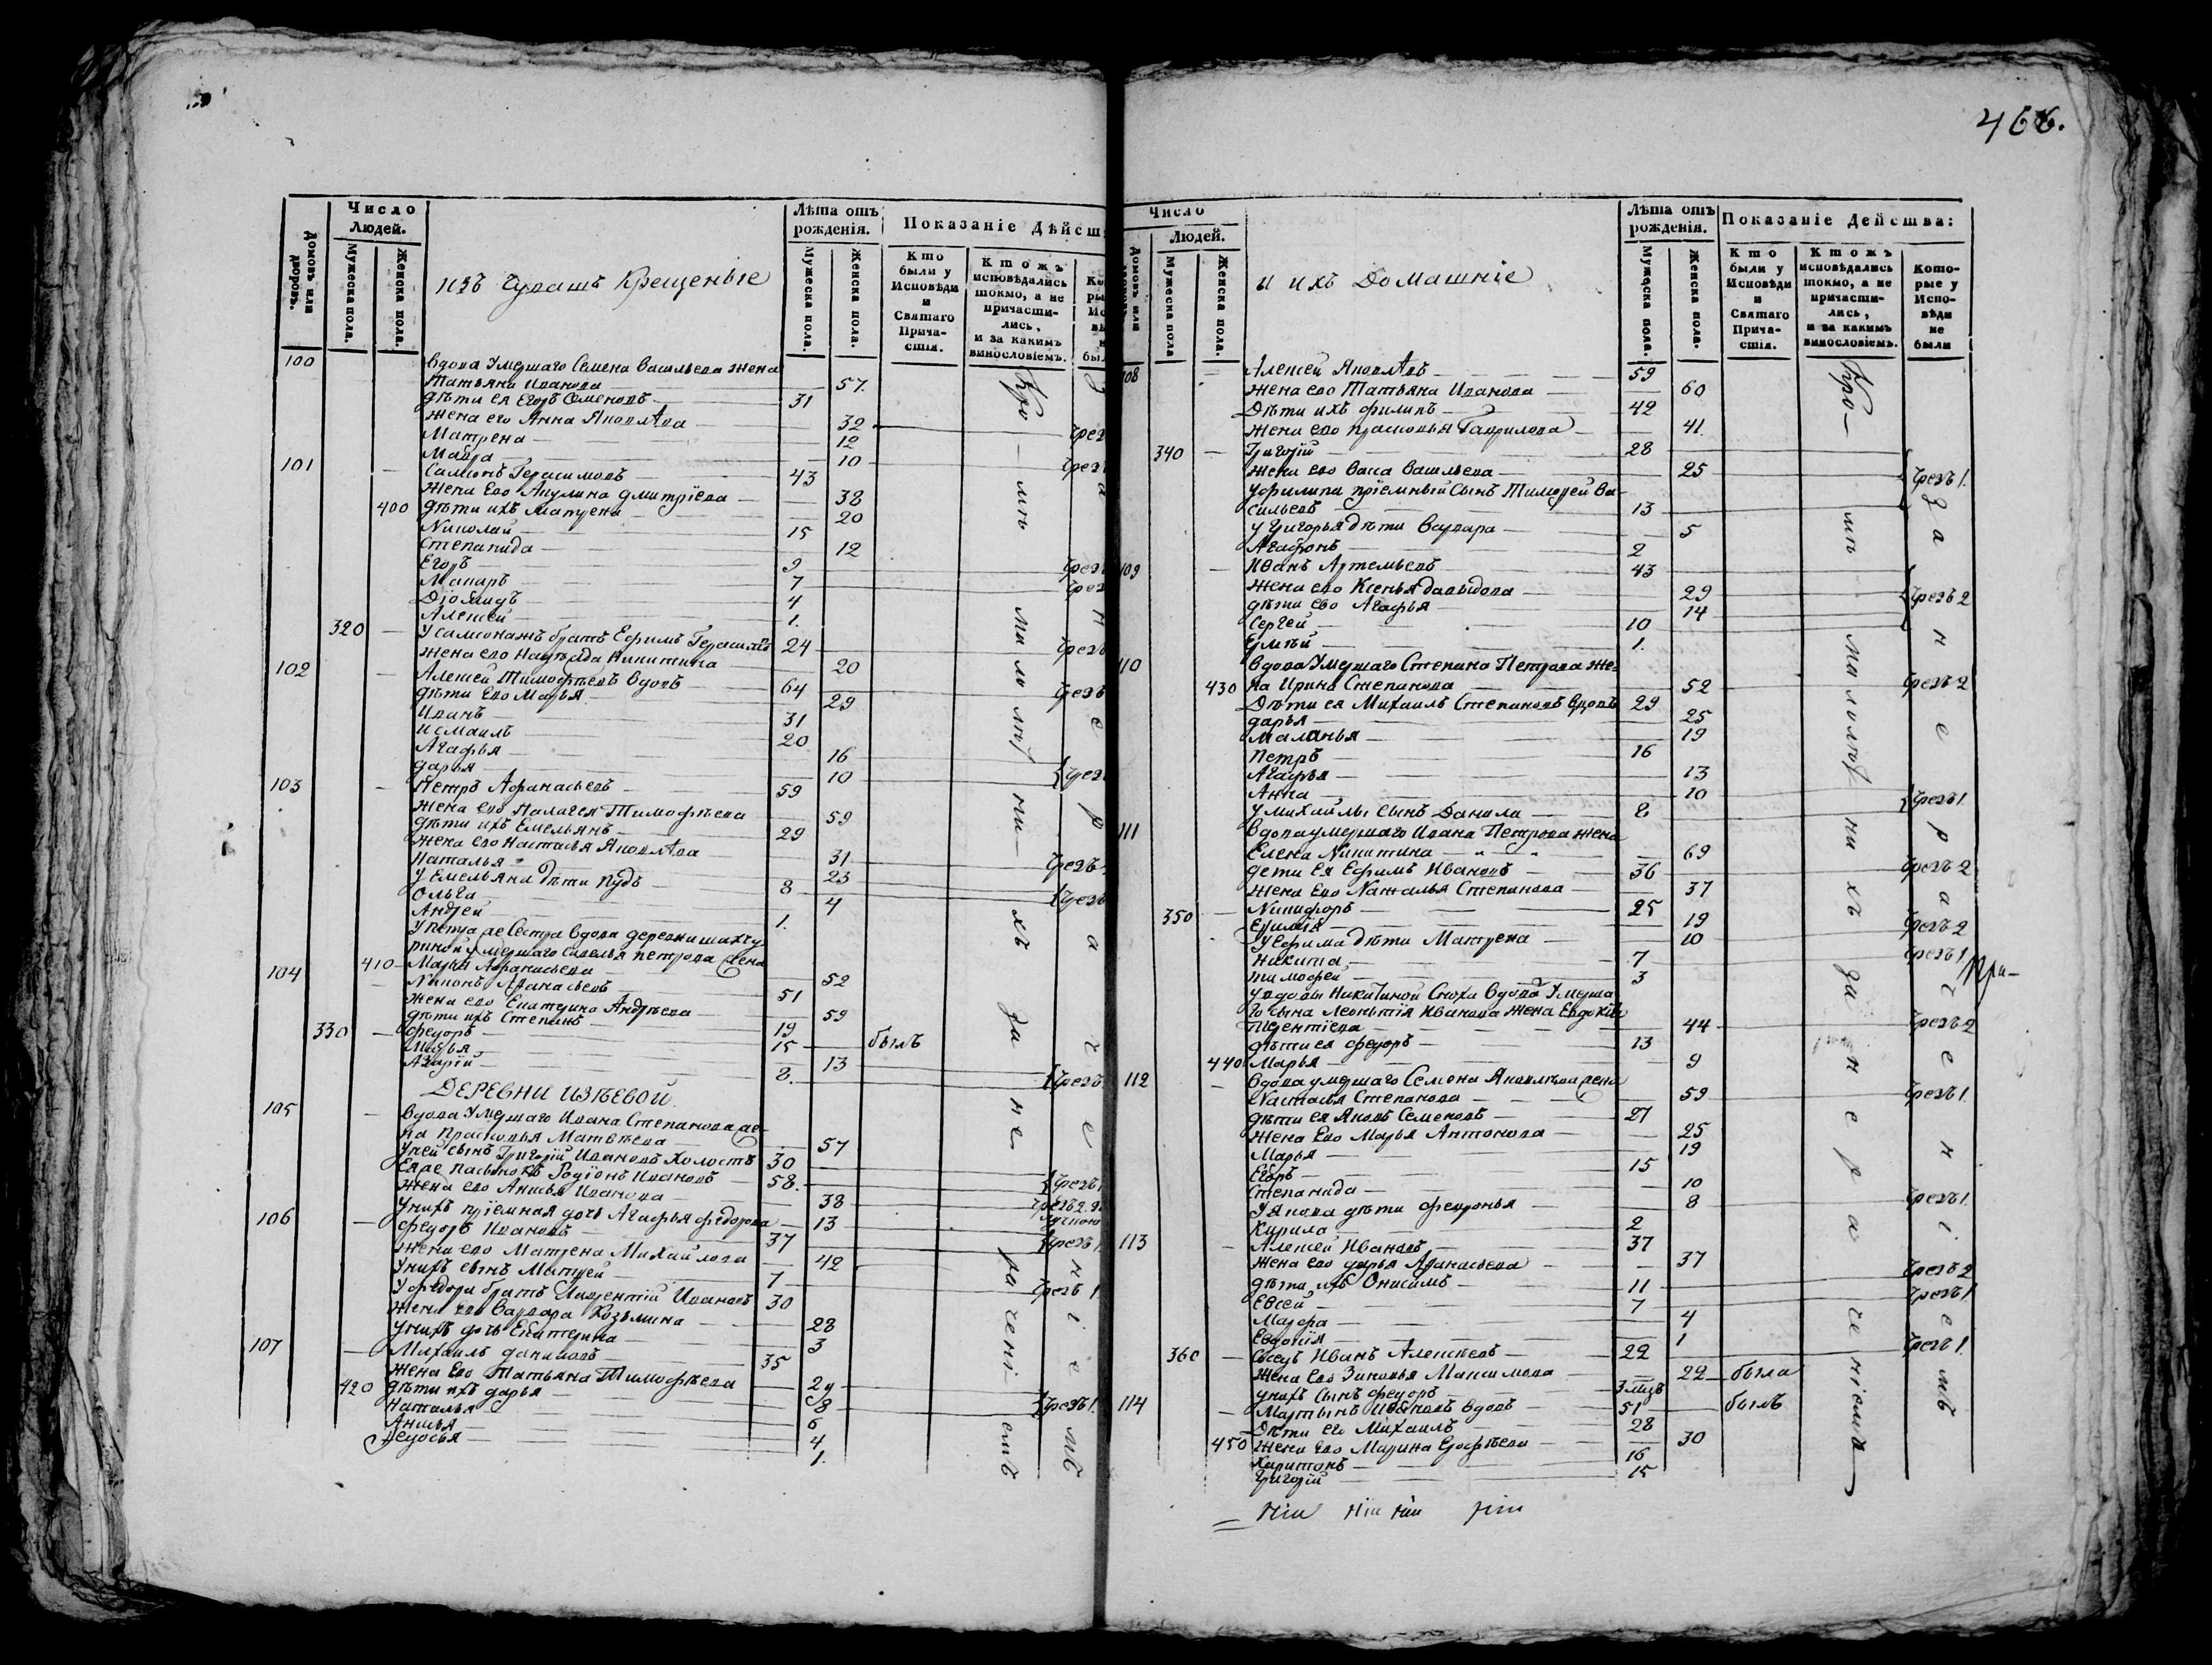 466.
Число
Людей.
Домовъ или дворовъ.
Мужеска пола.
Женска пола.
изъ Чувашъ Крещеные
Лѣта отъ рожденія.
Мужеска пола.
Женска пола.
Показаніе Дѣйст
Кто были у Исповѣди и Святаго Прича-стія.
Ктожъ исповѣдались токмо, а не причасти-лись, и за какимъ винословіемъ.
100 Вдова Умершаго Семена Васильева жена
Татьяна Иванова 57
дѣти ея Егоръ Семеновъ 31
жена его Анна Яковлѣва 32
Матрена 12
Мавра 10
101 Самсонъ Герасимовъ 43
жена Его Акулина дмитріева 38
400 дѣти ихъ Матрена 20
Николай 15
Степанида 12
Егоръ 9
Макаръ 7
4
Алексей 1.
320 У самсонажъ братъ Ефимъ Герасимовъ 24
жена его Никитина 20
102 Алексей Тимофѣевъ вдовъ 64
дѣти Его Марья 29
Иванъ 31
Исмаилъ 20
Агафья 16
дарья 10
103 Петръ Афанасьевъ 59
жена его Палагея Тимофѣева 59
дѣти ихъ Емельянъ 29
жена его Настасья Яковлѣва 31
Наталья 23
У Емельяна дѣти 8
Ольга 4
Андрей 1.
У Петра же Сестра вдова деревни
умершаго Савелья Петрова жена
410 Марья Афанасьева 52
104 Никонъ Афанасьевъ 51
жена его Екатерина Андрѣева 59
дѣти ихъ Степанъ 19
330 Федоръ 15 былъ
Марья 13
Азарій 8.
ДЕРЕВНИ ИЗѢЕВОЙ
105 Вдова Умершаго Ивана Степанова же-
на Прасковья Матвѣева 57
У ней сынъ Григорій Ивановъ Холостъ 30
Ея же пасынокъ Родіонъ Ивановъ 58.
жена его Анисья Иванова 38
У нихъ пріемная дочь Агафья федорова 13
106 Федоръ Ивановъ 37
жена его Матрена Михайлова 42
У нихъ сынъ Матвей 7
У федора братъ Ивановъ 30
жена его Варвара Козьмина 28
У нихъ дочь Екатерина 3
107 Михаилъ даниловъ 35
жена Его Татьяна Тимофѣева 29
420 дѣти ихъ дарья 8
Наталья 6
Анисья 4
Федосья 1.
Кро- мѣ малолѣт нихъ за нераченіемъ
Число
Людей.
Домовъ или
Мужеска пола
Женска пола.
и ихъ Домашніе
Лѣта отъ рожденія.
Мужеска пола.
Женска пола.
Показаніе Действа:
Кто были у Исповѣди и Святаго Прича-стія.
Ктожъ исповѣдались токмо, а не причасти-лись, и за какимъ винословіемъ.
Кото-рые у Испо-вѣди не были
108 Алексей Яковлѣвъ 59
жена его Татьяна Иванова 60
Дѣти ихъ филипъ 42
жена его прасковья Гаврилова 41.
340 Григорій 28
жена его Васильева 25 Чрезъ 1.
У филипа пріемный Сынъ Тимофей Ва-
сильевъ 13
У Григорья дѣти Варвара 5
Агафонъ 2
109 Иванъ Артемьевъ 43
жена его Ксенья давыдова 29 Чрезъ 2
дѣти его Агафья 14
Сергей 10
1.
110 вдова Умершаго Степана Петрова же-
430 на Ирина Степанова 52 Чрезъ 2
Дѣти ея Михаилъ Степановъ вдовъ 29
дарья 25
Маланья 19
Петръ 16
Агафья 13
Анна 10 Чрезъ 1.
У михайлы сынъ Данила 8
111 вдова умершаго Ивана Петрова жена
Елена Никитина 69
дети ея Ефимъ Ивановъ 36 Чрезъ 2
жена Его Наталья Степанова 37
350 Никифоръ 25
19 Чрезъ 2
У Ефима дѣти Матрена 10
Никита 7 Чрезъ 1
тимофей 3
У вдовы Никитиной Сноха вдова Умерша
го сына Леонтія Иванова жена Евдокія
44 Чрезъ 2
дѣти ея федоръ 13
440 Марья 9
112 вдова умершаго Семена Яковлѣва жена
Настасья Степанова 59 Чрезъ 1.
дѣти ея Яковъ Семеновъ 27
жена Его Марья Антонова 25
Марья 19
Егоръ 15
Степанида 10
У Якова дѣти 8 Чрезъ 1.
Кирила 2
113 Алексей Ивановъ 37
жена его дарья Афанасьева 37
дѣти ихъ Онисимъ 11 Чрезъ 2
Евсей 7 Чрезъ 1
Марфа 4
Евдокія 1
360 Иванъ Алексеевъ 22 Чрезъ 1.
жена его Зиновья Максимова 22 была
у нихъ сынъ федоръ 3 мцъ
114 Мартынъ Ивановъ вдовъ 51 былъ
Дѣти его Михаилъ 28
450 жена его Марина Ерофѣева 30
Харитонъ 16
Григорій 15
Кро- мѣ малолѣт нихъ за нераченіемъ
за нераченіемъ
При-